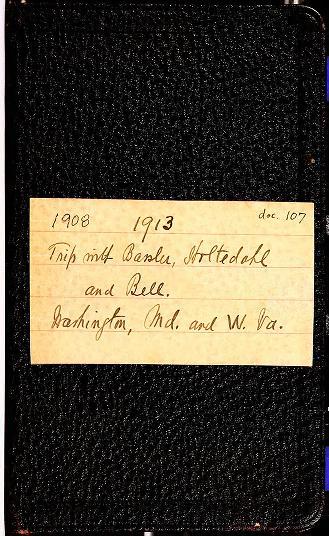 1908 1913 doc. 107
Trip with Bassler, Holtedahl
and Bell.
Washington, Md. and W. Va.